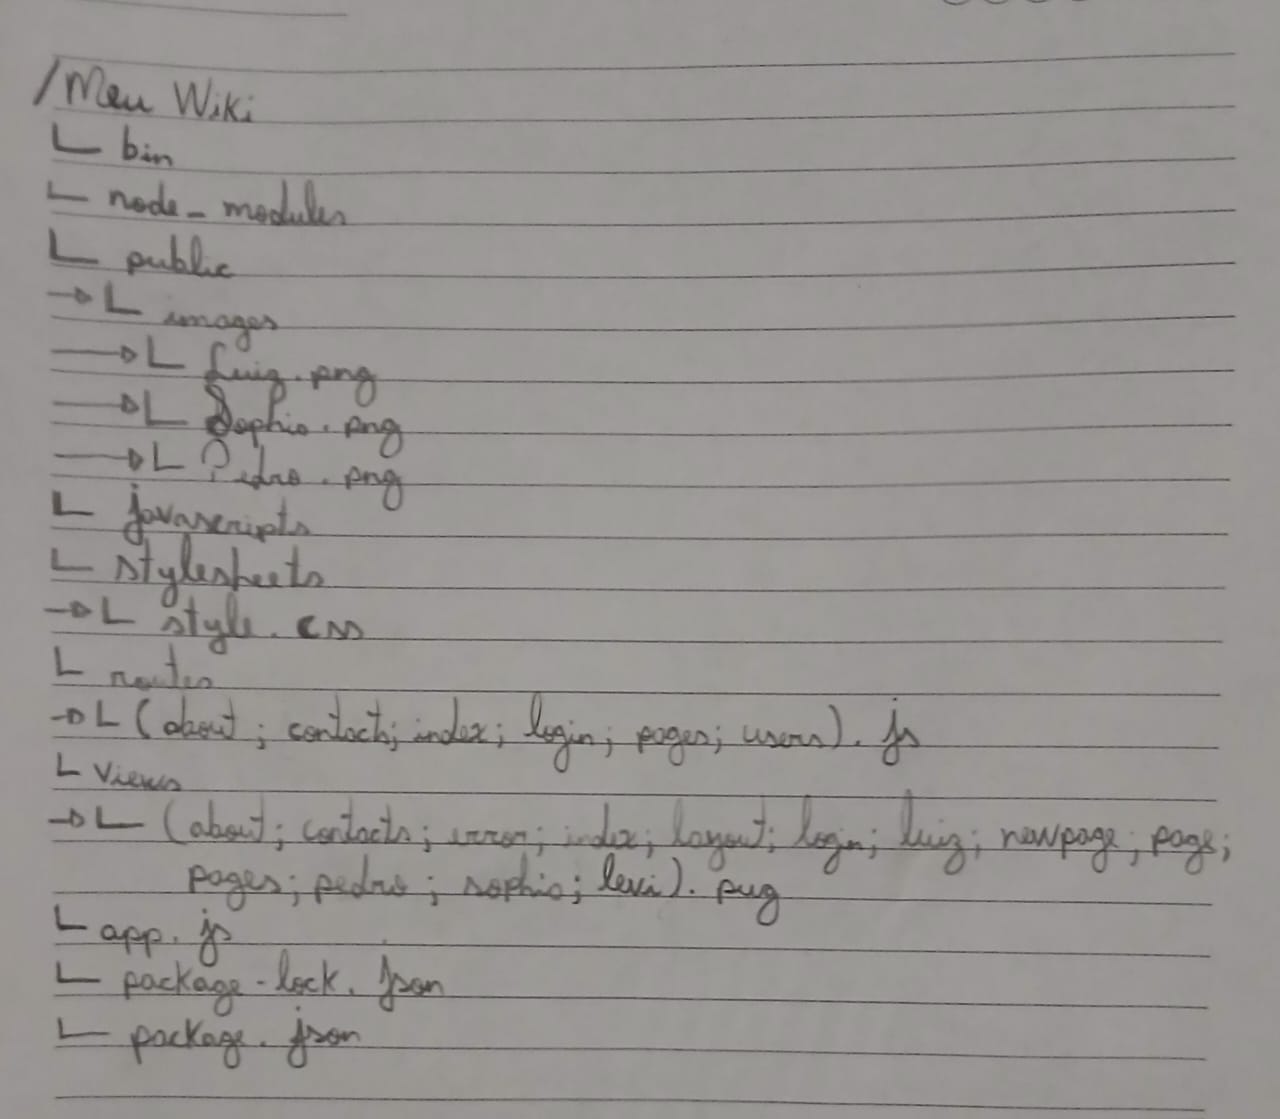 /Meu Wiki
└ bin
└ node_modules
└ public
→ └ images
→ └ Luiz.png
→ └ Sophia.png
→ └ Pedro.png
└ javascripts
└ stylesheets
→ └ style.css
└ routes
→ └ (about; contacts; index; login; pages; users).js
└ views
→ └ (about; contacts; error; index; layout; login; luiz; newpage; page;
pages; pedro; sophia; levi).pug
└ app.js
└ package-lock.json
└ package.json